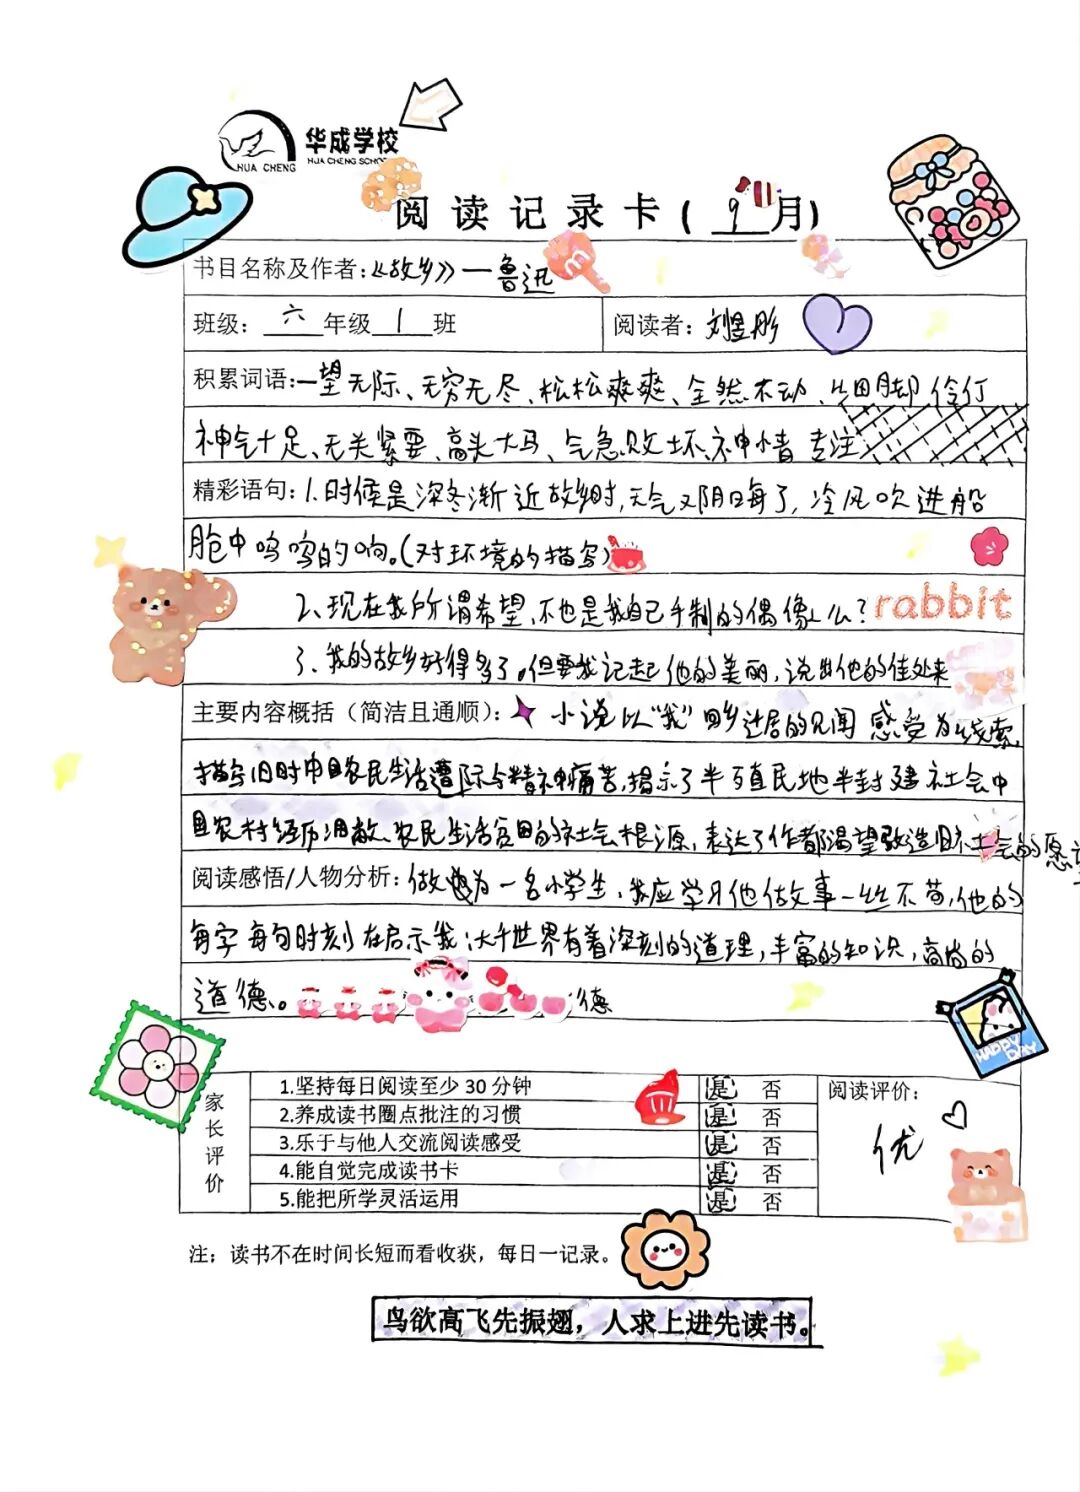 华成学校
HUA CHENG
HUA CHENG SCHOOL
阅读记录卡(9月)
书目名称及作者:《故乡》—鲁迅
班级:六年级1班
阅读者:刘昱彤
积累词语:一望无际、无穷无尽、松松爽爽、全然不动、 伶仃
神气十足、无关紧要、高头大马、气急败坏、神情专注
精彩语句:1.时候是深冬渐近故乡时,天气又阴晦了,冷风吹进船
舱中呜呜的响。(对环境的描写)
2、现在我所谓希望,不也是我自己手制的偶像么?
rabbit
3、我的故乡好得多了。但要我记起他的美丽,说出他的佳处来
主要内容概括(简洁且通顺):小说以“我”回乡迁居的见闻感受为线索,
描写旧时中国农民生活遭际与精神痛苦,揭示了半殖民地半封建社会中
国农村经历凋敝、农民生活贫困的社会根源,表达了作者渴望改造旧社会的愿望
阅读感悟/人物分析:做为一名小学生,我应学习他做故事一丝不苟,他的
每字每句时刻在启示我:大千世界有着深刻的道理,丰富的知识,高尚的
道德。 德
HAPPY DAY
家长评价
1.坚持每日阅读至少30分钟 是 否
2.养成读书圈点批注的习惯 是 否
3.乐于与他人交流阅读感受 是 否
4.能自觉完成读书卡 是 否
5.能把所学灵活运用 是 否
阅读评价:
优
注:读书不在时间长短而看收获,每日一记录。
鸟欲高飞先振翅,人求上进先读书。